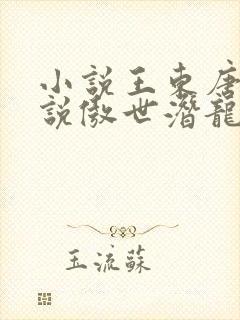 小說王東唐
說傲世潛龍
玉流蘇